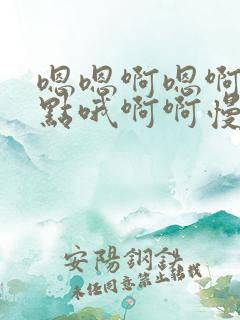 嗯嗯啊嗯啊
點哦啊啊慢
安陽鋼鐵
未經同意禁止轉載